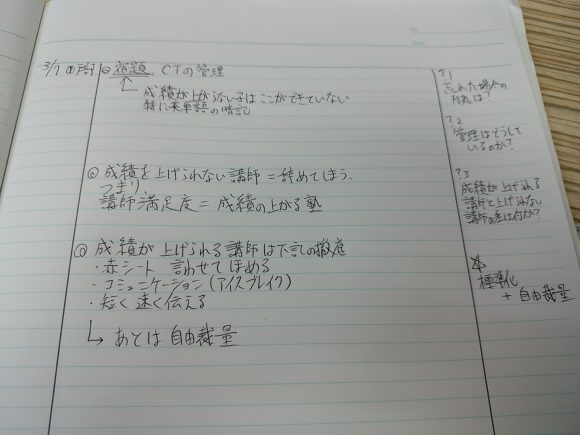 3/7
◎宿題、CTの管理
成績が上がらない子はここができていない
特に英単語の暗記
◎成績を上げられない講師=辞めてしまう.
つまり、
講師満足度=成績の上がる塾
◎成績が上げられる講師は下記の徹底
・赤シート 言わせてほめる
・コミュニケーション(アイスブレイク)
・短く速く伝える
↳あとは自由裁量
?1
忘れた場合の
対処は?
?2
管理はどうして
いるのか?
?3
成績が上げられる
講師と上げられない
講師の差は何か?
標準化
+自由裁量
No.
Date